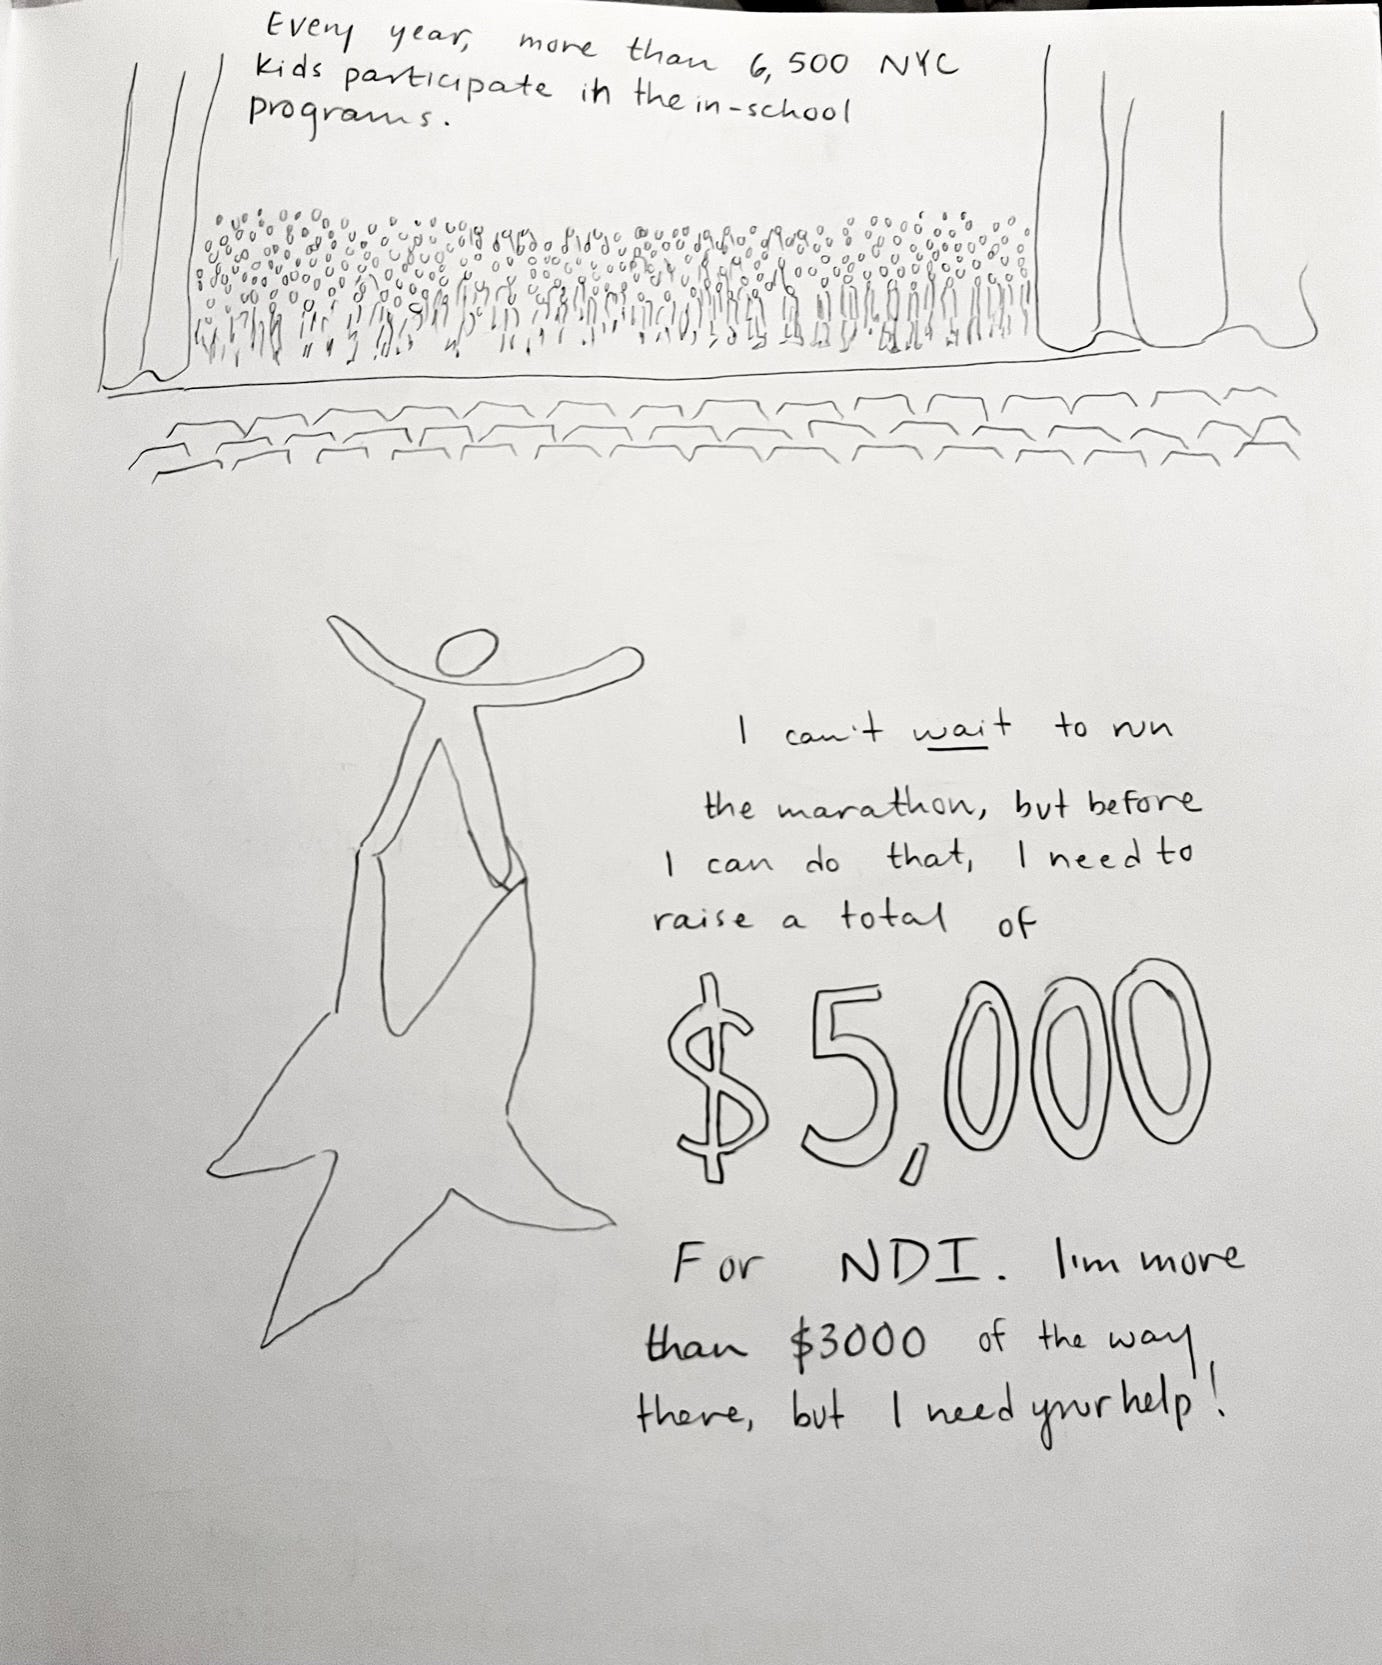 Every year, more than 6,500 NYC
kids participate in the in-school
programs.
I can't wait to run
the marathon, but before
I can do that, I need to
raise a total of
$5,000
For NDI. I'm more
than $3000 of the way
there, but I need your help!